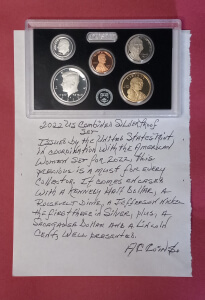 2022 US Combined Silver Proof
Set
Issued by the United States Mint,
in coordination with the American
Women Set for 2022, this
precious is a must for every
collector. It comes encased
with a Kennedy Half Dollar, a
Roosevelt Dime, a Jefferson Nickel
the first three in Silver, plus, a
Sacagawea Dollar and a Lincoln
Cent, well presented.